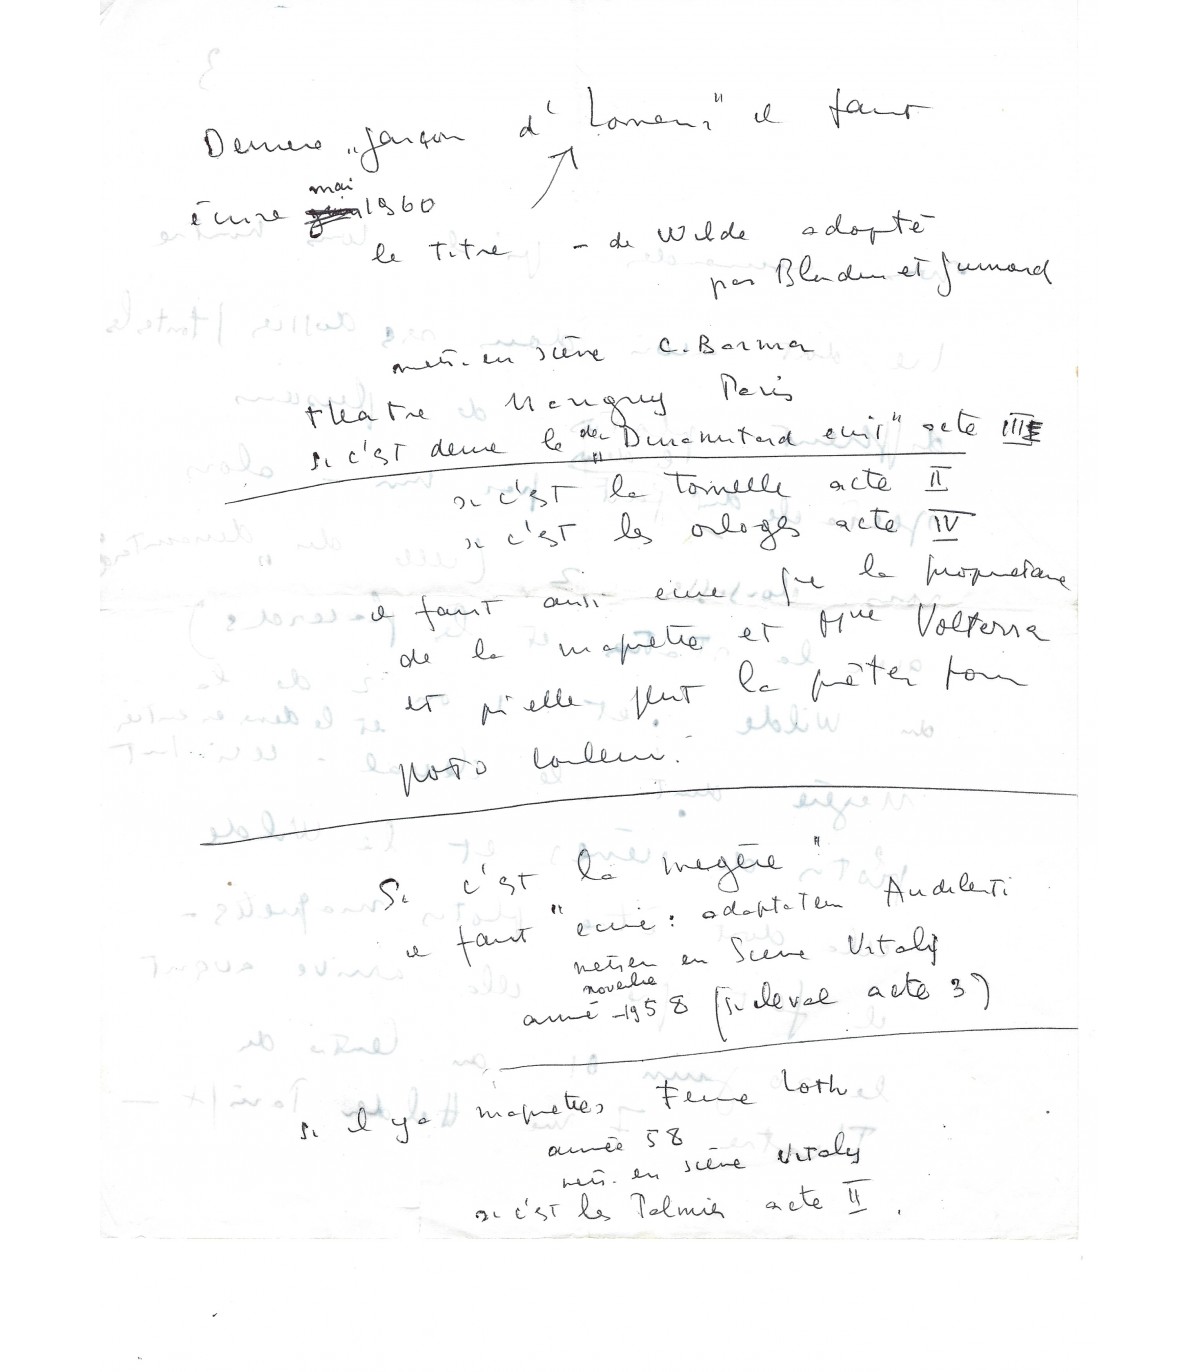 Derriere "garçon d'honneur" il faut
écrire mai 1960
le titre - de Wilde adopté
par Blondin et Guimard
mis. en scène C. Barma
théatre Marigny Paris
si c'est acte III
si c'est la tonnelle acte II
si c'est les orloges acte IV
il faut aussi écrire que la propriétaire
de la maquette et Mme Volterra
et qu'elle peut la prêter pour
poto couleur.
Si c'est la megère"
il faut "écrire: adaptation Audiberti
metsen en Scene Vitaly
novembre
année - 1958 (si cleval acte 3)
si il y a maquettes Feme Loth
année 58
mis. en scène Vitaly
si c'est les Palmiers acte II.